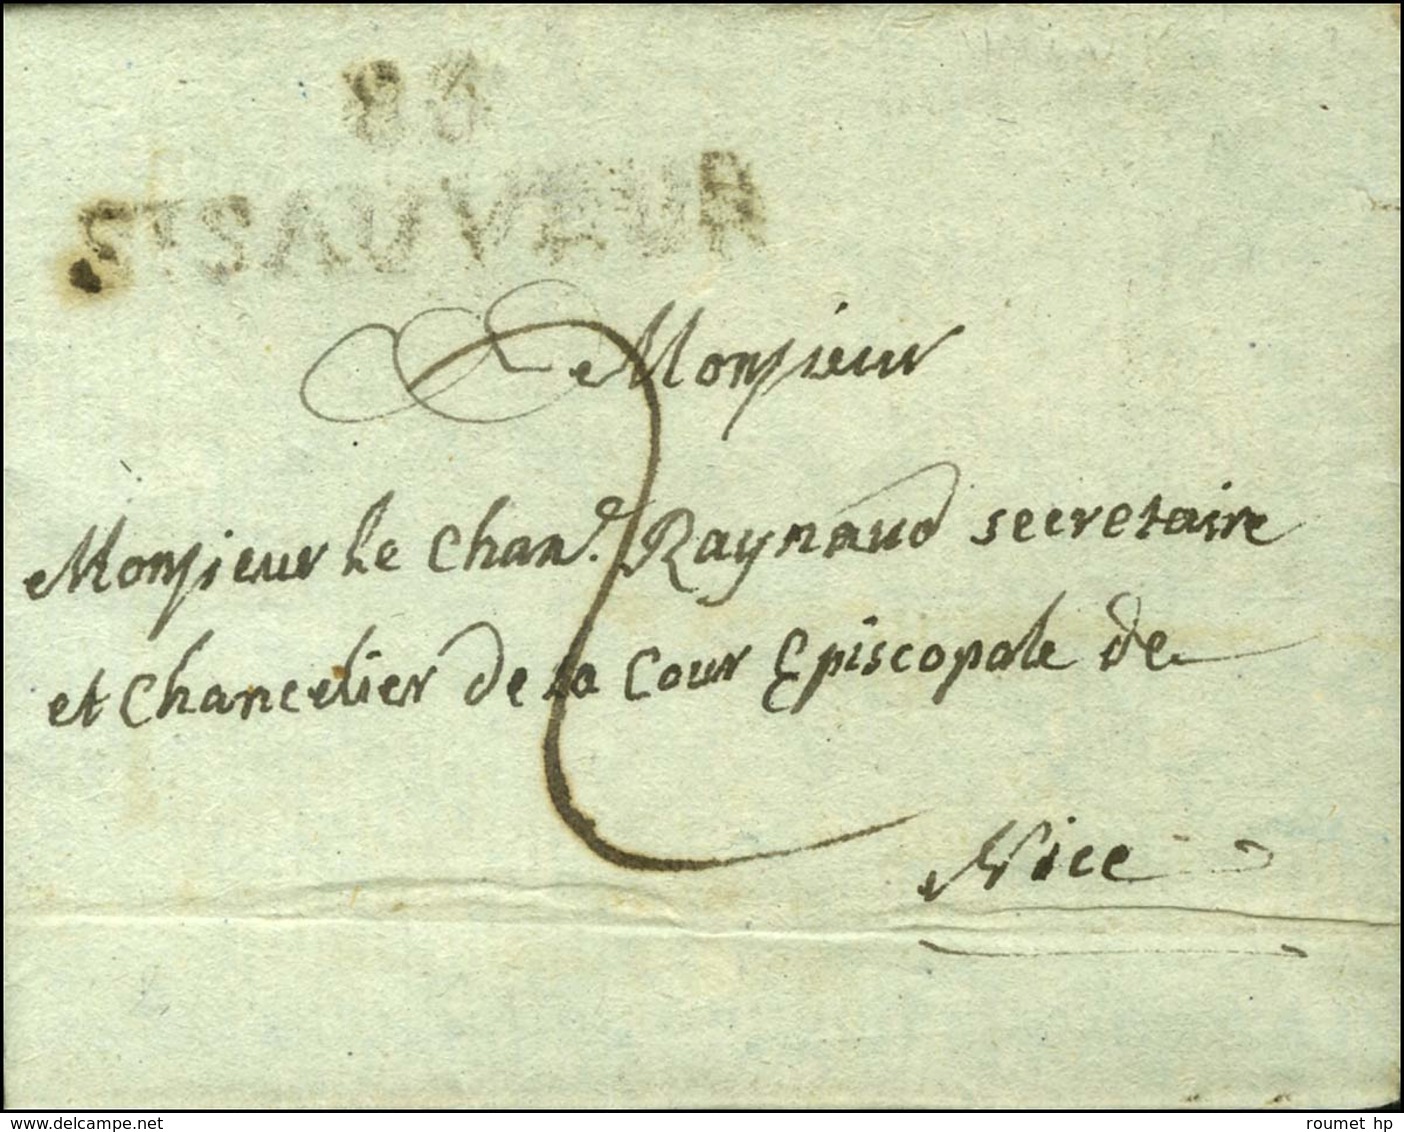 88
Monsieur
Monsieur Le Chan.e Raynaud secretaire
et Chancelier de la Cour Episcopale de
2
Nice
www.delcampe.net
roumet hp